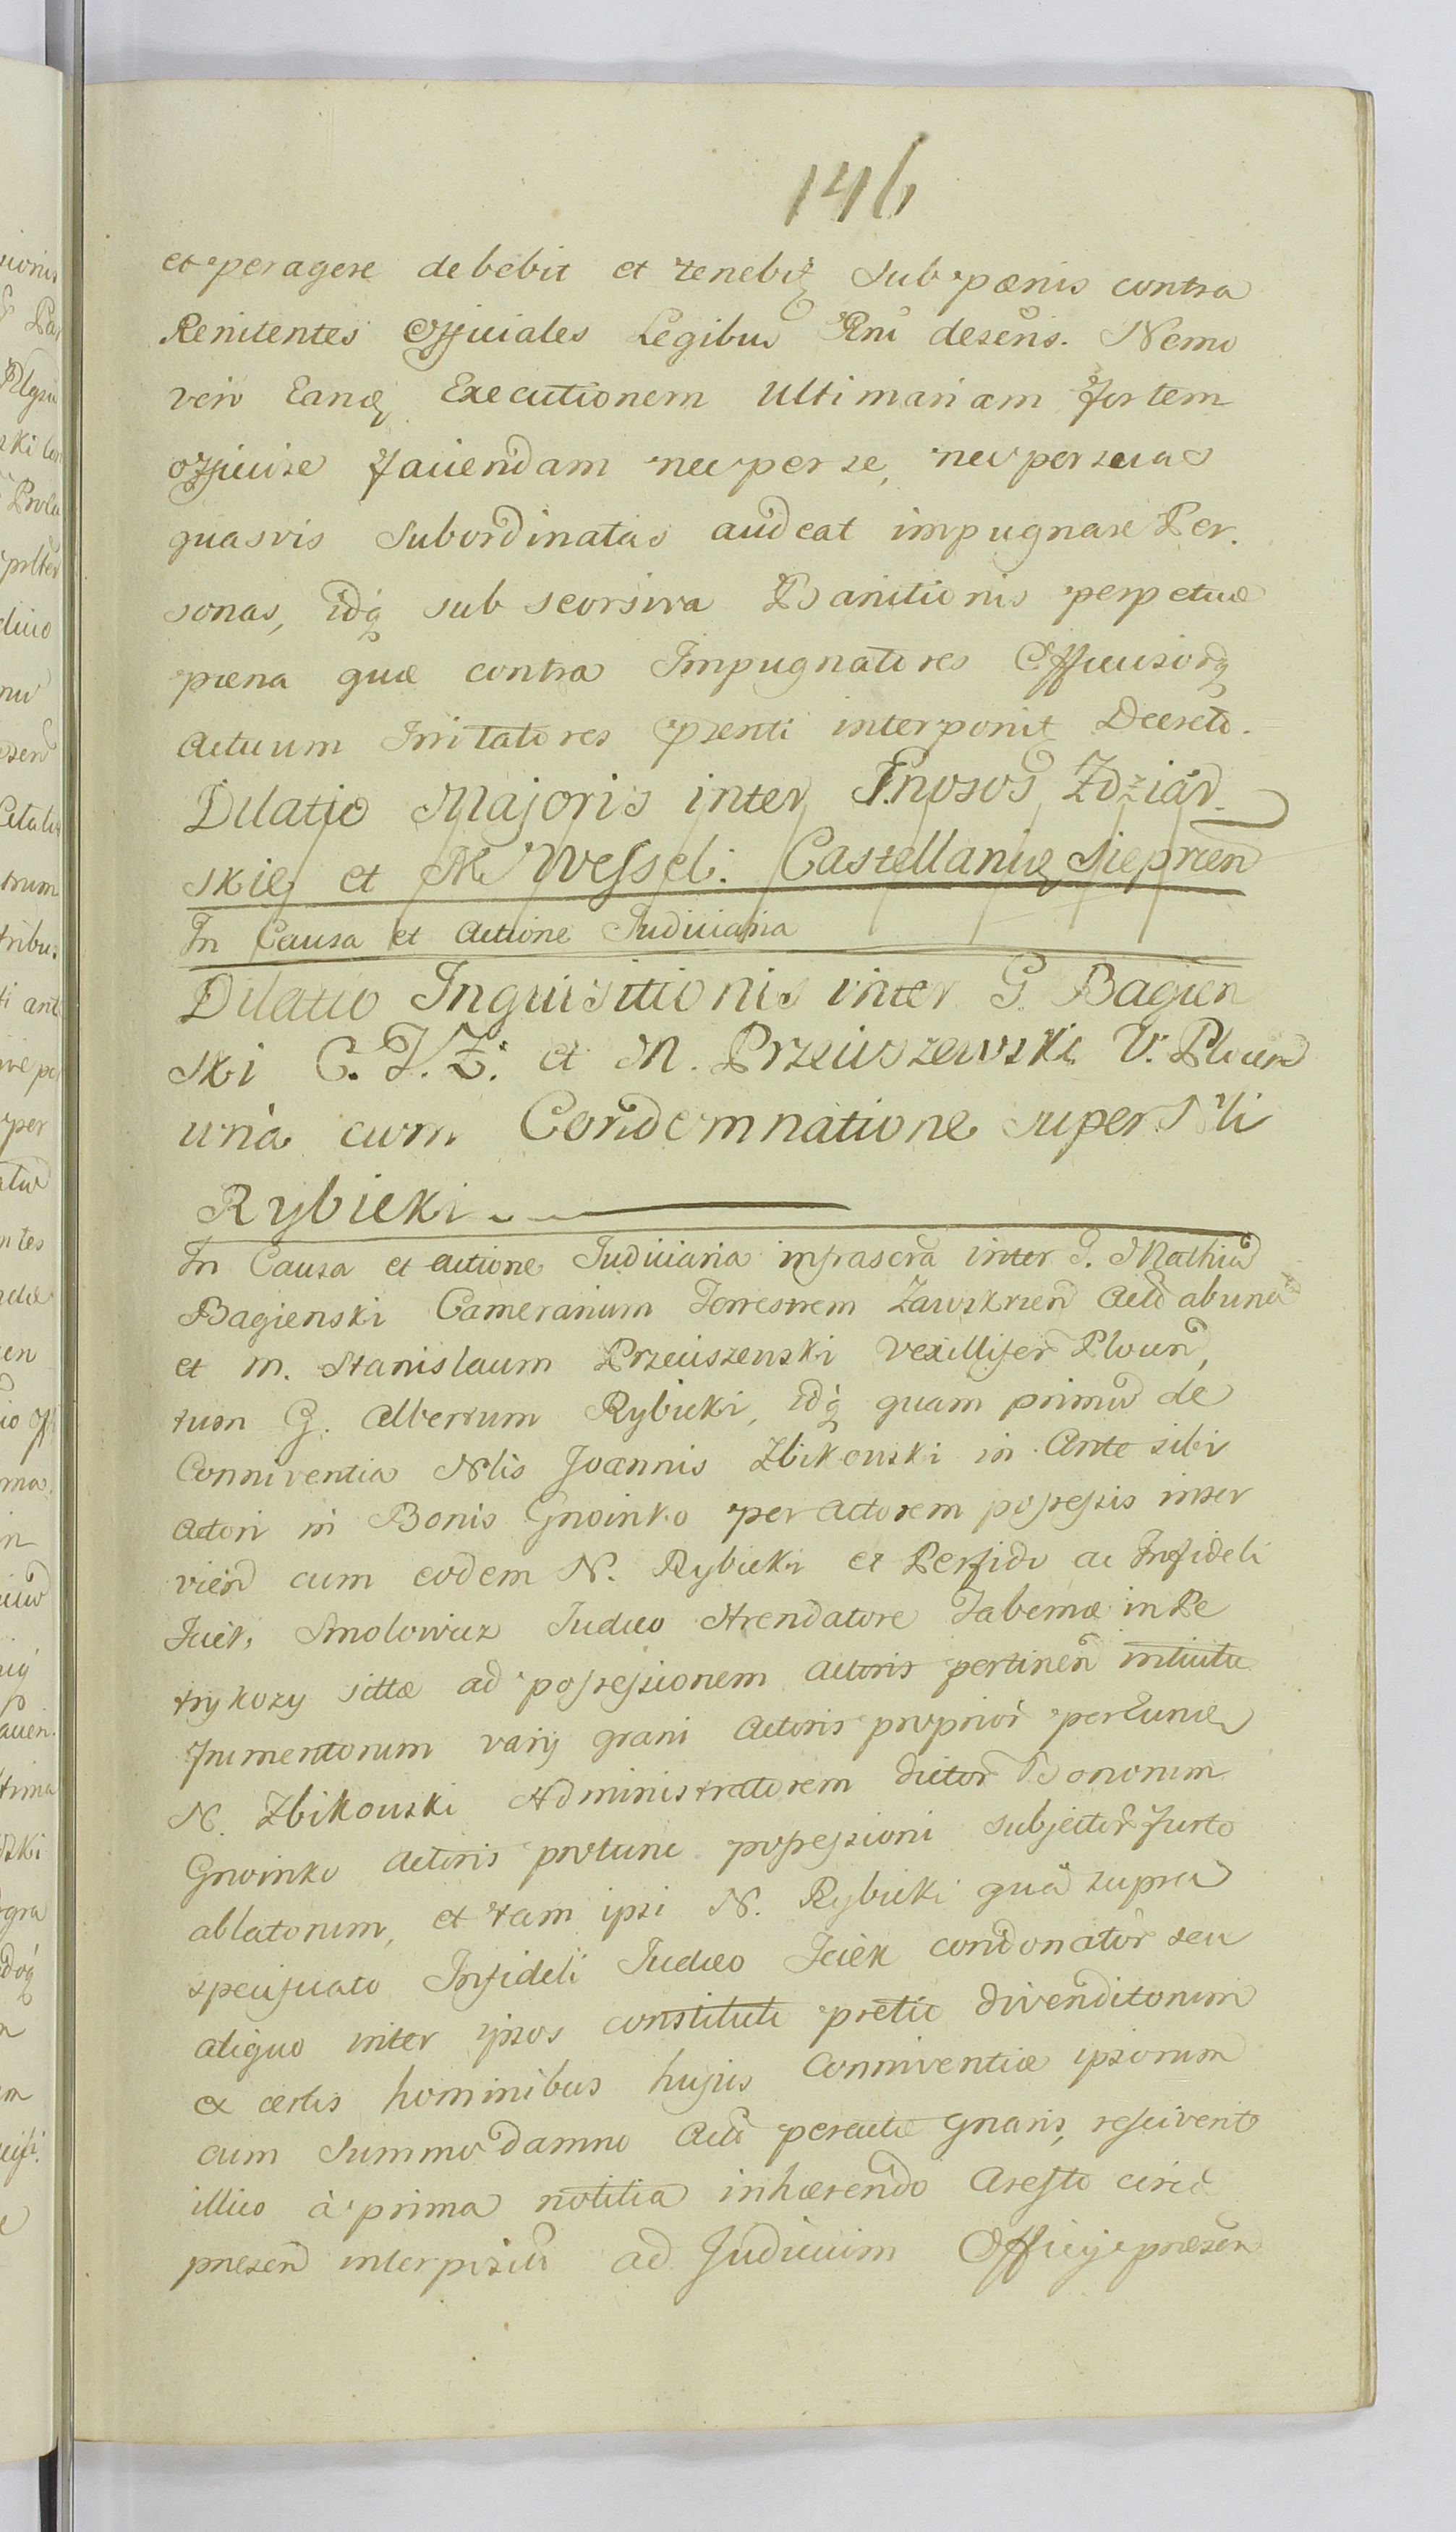 146
et peragere debebit et tenebitꝫ sub pœnis contra
Renitentes Officiales Legibus Rni desens. Nemo
vero Eandꝫ Executionem Ultimariam fortem
officiose faciendam nec per se, nec per suas
quasvis subordinatas audeat impugnare Per-
sonas, idqꝫ sub seorsiva Banitionis perpetuæ
pœna quæ contra Impugnatores Officiosorꝫ
actuum Irritatores prsenti interponitꝫ Decreto.
Dilatio Majoris inter Gnosos Zdziar-
skie et M Wessel. Castellaniæ Sieprcen
In Causa et actione Judiciaria
Dilatio Inquisitionis inter G. Bagien
ski C. T. Z. et M. Przeciszewski V. Plocen
unà cum Condemnatione super Nli
Rybicki
In Causa et actione Judiciaria infrascra inter G. Mathiam
Bagienski Camerarium Terrestrem Zawskrzen Act ab una
et M. Stanislaum Przeciszewski Vexilliferr Plocen,
tum G. Albertum Rybicki, idqꝫ quam primum de
Conniventia Nlis Joannis Zbikouski in Ante sibi
actori in Bonis Gnoinko per actorem possessis inser
vien cum eodem N. Rybicki et Perfido ac Infideli
Jcek Smolowicz Judæo Arendatore Tabernæ in Pe
trykozy sittæ ad possessionem actoris pertinen intuitu
frumentorum varij grani actoris proprior per tunc
N. Zbikouski Administratorem dictor Bonorum
Gnoinko actoris protunc possessioni subjector furto
ablatorum, et tam ipsi N. Rybicki quâ supra
specificato Infideli Judæo Jciek condonator seu
aliquo inter ipsos constituti pretio divenditorum
ex certis hominibus hujus Conniventiæ ipsorum
cum summo damno Acti peractæ gnaris, resciverit
illico à prima notitia inhærendo Aresto circa
præsen interpositi ad Judicium Officij præsen